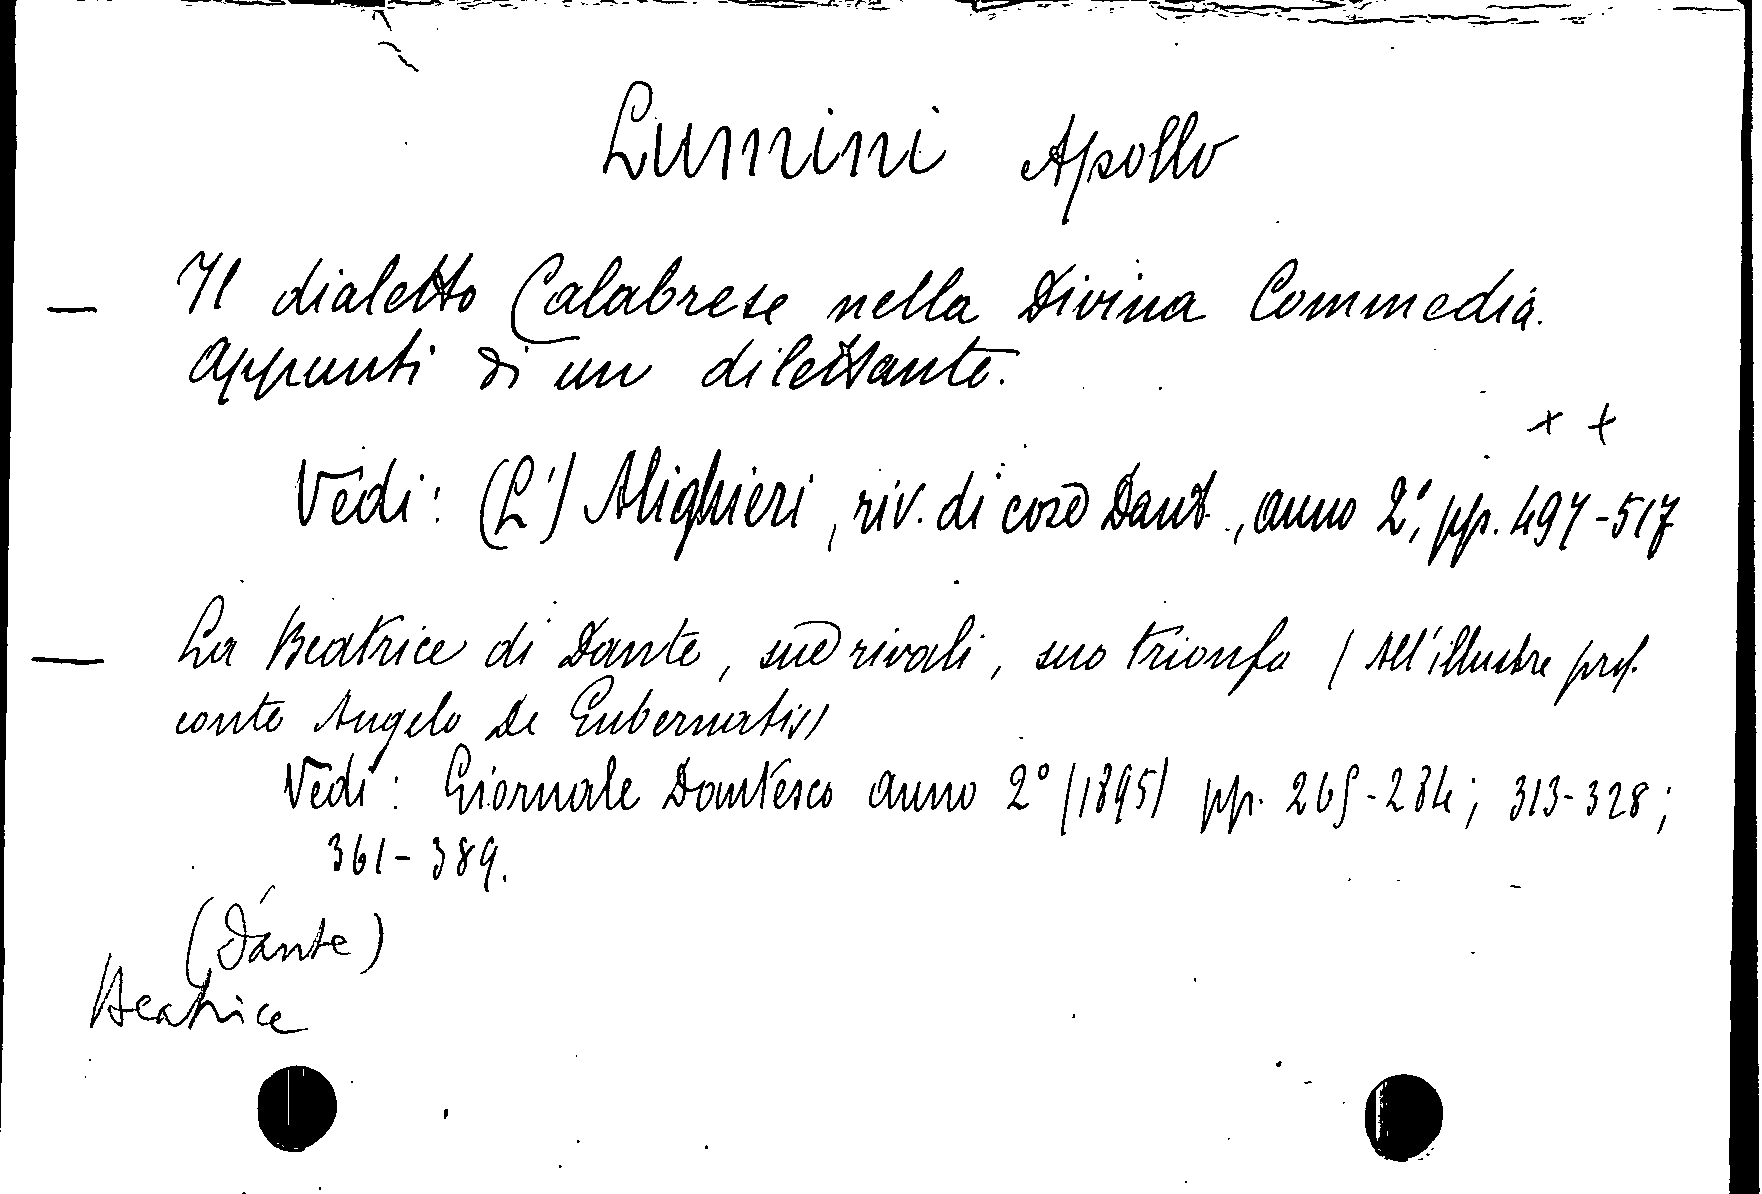 Lumini Apollo
— Il dialetto Calabrese nella Divina Commedia.
Appunti di un dilettante.
+ +
Vedi: (L') Alighieri, riv. di cose Dant., anno 2°, pp. 497-517
— La Beatrice di Dante, sue rivali, suo trionfo (All'illustre prof.
conte Angelo De Gubernatis)
Vedi: Giornale Dantesco anno 2° (1895) pp. 265-284; 313-328;
361-389.
(Dante)
Beatrice